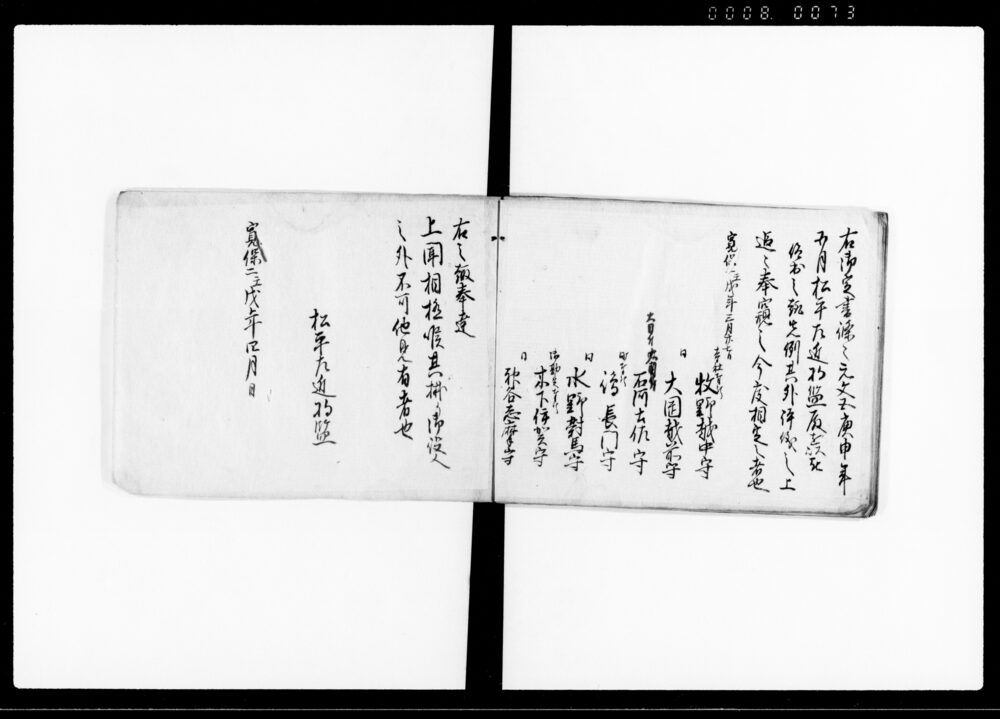 0008. 0073
右御定書條々元文五庚申年
五月松平左近将監
之趣先例其外評議之上
追々奉窺之今度相定之者也
寛保二壬戌年三月廿七日
寺社奉行
牧野越中守
同
大岡越前守
大目付
石河土佐守
町奉行
嶋長門守
同
水野對馬守
御勘定奉行
木下伊賀守
同
神谷志摩守
右之趣奉達
上聞相極候其掛り御役人
之外不可他見有者也
松平左近将監
寛保二壬戌年四月日